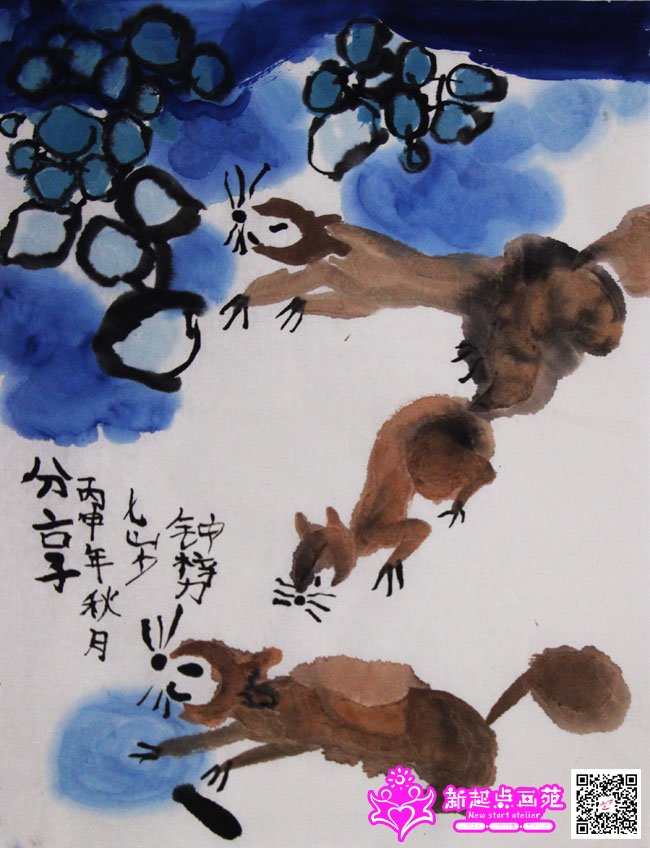 分享
丙申年秋月
七岁
钟
新起点画苑
New start atelier